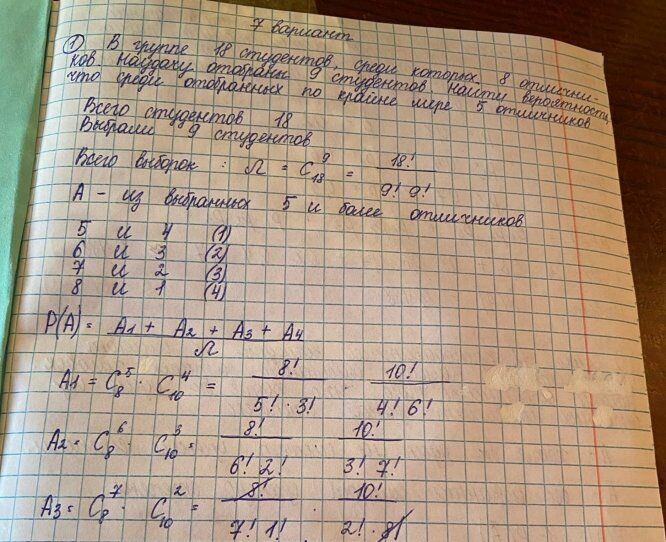 7 вариант
① В группе 18 студентов, среди которых 8 отлични-
ков. Наудачу отобраны 9 студентов. Найти вероятность,
что среди отобранных по крайне мере 5 отличников
Всего студентов 18
Выбрали 9 студентов
Всего выборок : Ω = C₁₈⁹ = 18! / (9! 9!)
А - из выбранных 5 и более отличников
5 и 4 (1)
6 и 3 (2)
7 и 2 (3)
8 и 1 (4)
P(A) = (A1 + A2 + A3 + A4) / Ω
A1 = C₈⁵ · C₁₀⁴ = 8! / (5! · 3!) · 10! / (4! 6!)
A2 = C₈⁶ · C₁₀³ = 8! / (6! 2!) · 10! / (3! 7!)
A3 = C₈⁷ · C₁₀² = 8! / (7! 1!) · 10! / (2! · 8!)